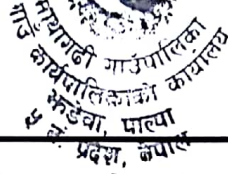 माथागढी गाउँपालिका
गाउँ कार्यपालिकाको कार्यालय
झडेवा, पाल्पा
५ नं. प्रदेश, नेपाल